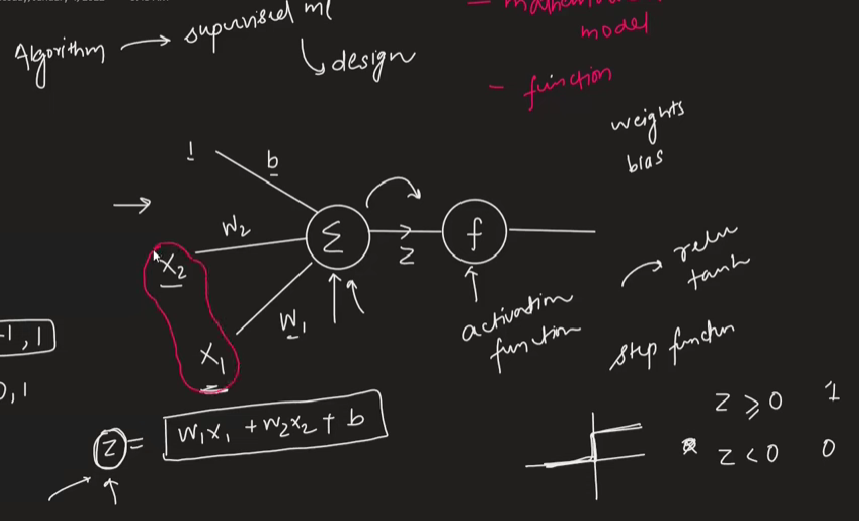 Algorithm → supervised ml
↳ design
model
- function
weights
bias
1
b
W₂
Σ
Z
f
X₂
W₁
X₁
activation
function
relu
tanh
step function
-1, 1
0, 1
Z = W₁X₁ + W₂X₂ + b
Z ≥ 0 1
Z < 0 0